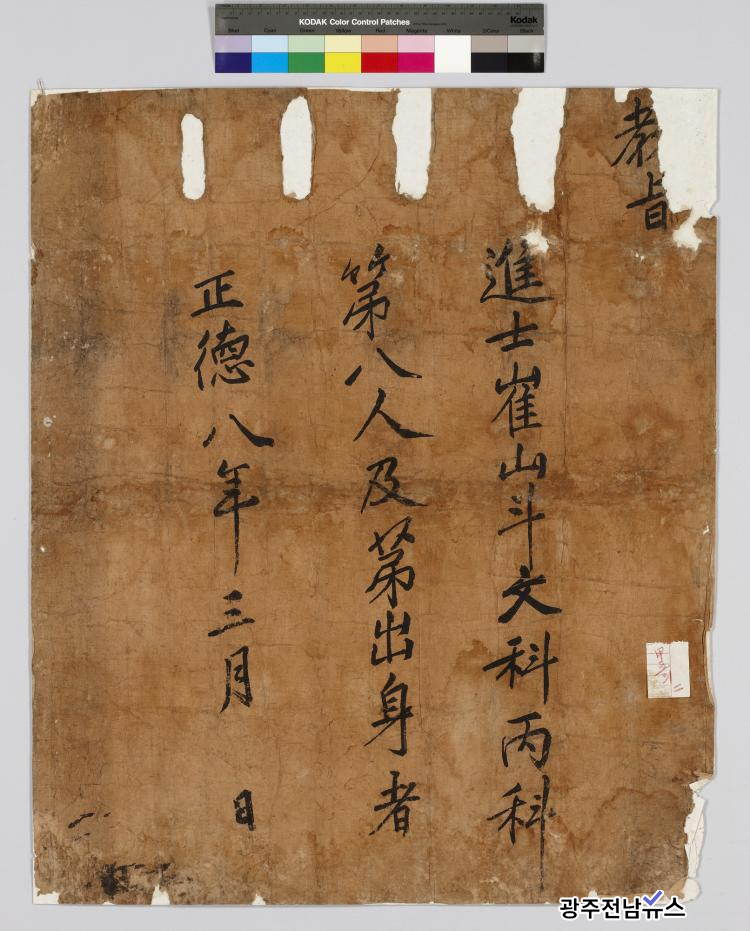 KODAK Color Control Patches
Kodak
Blue Cyan Green Yellow Red Magenta White 3/Color Black
教旨
進士崔山斗文科丙科
第八人及第出身者
正德八年三月 日
광주전남뉴스